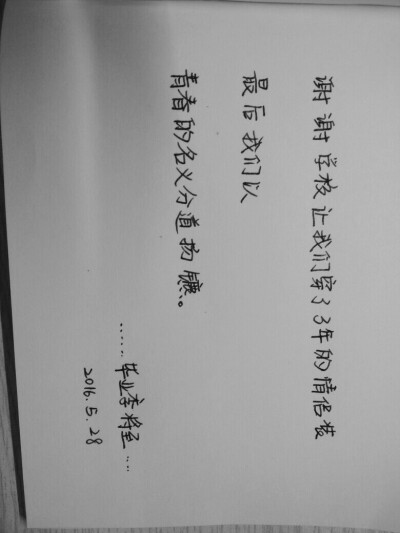 谢谢学校让我们穿了3年的情侣装
最后我们以
青春的名义分道扬镳。
......毕业季将至....
2016.5.28